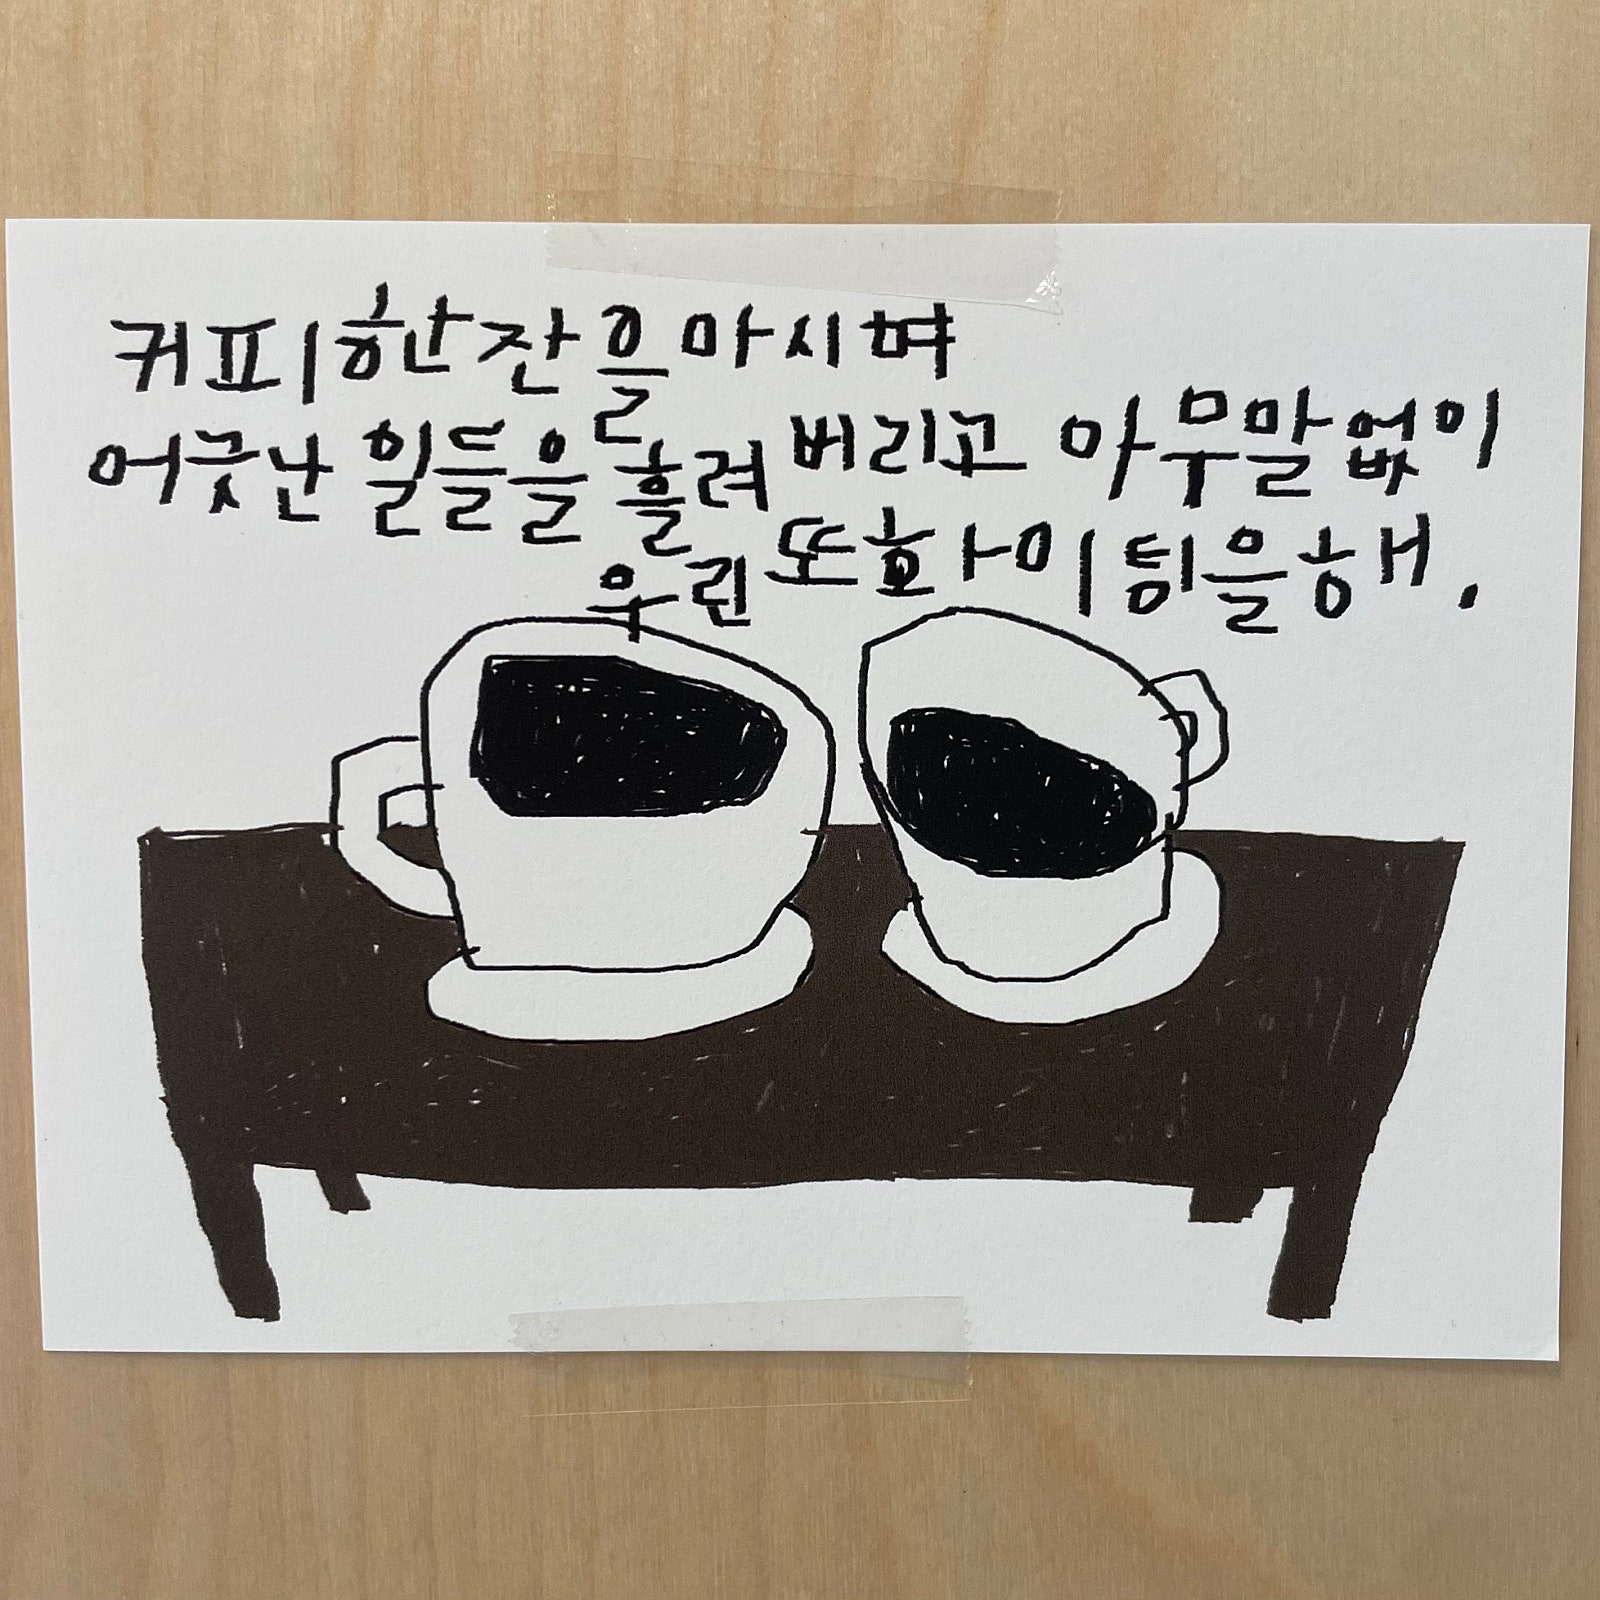 커피한잔을마시며
어긋난 일들을 흘려버리고 아무말없이
우린 또화이팅을해.